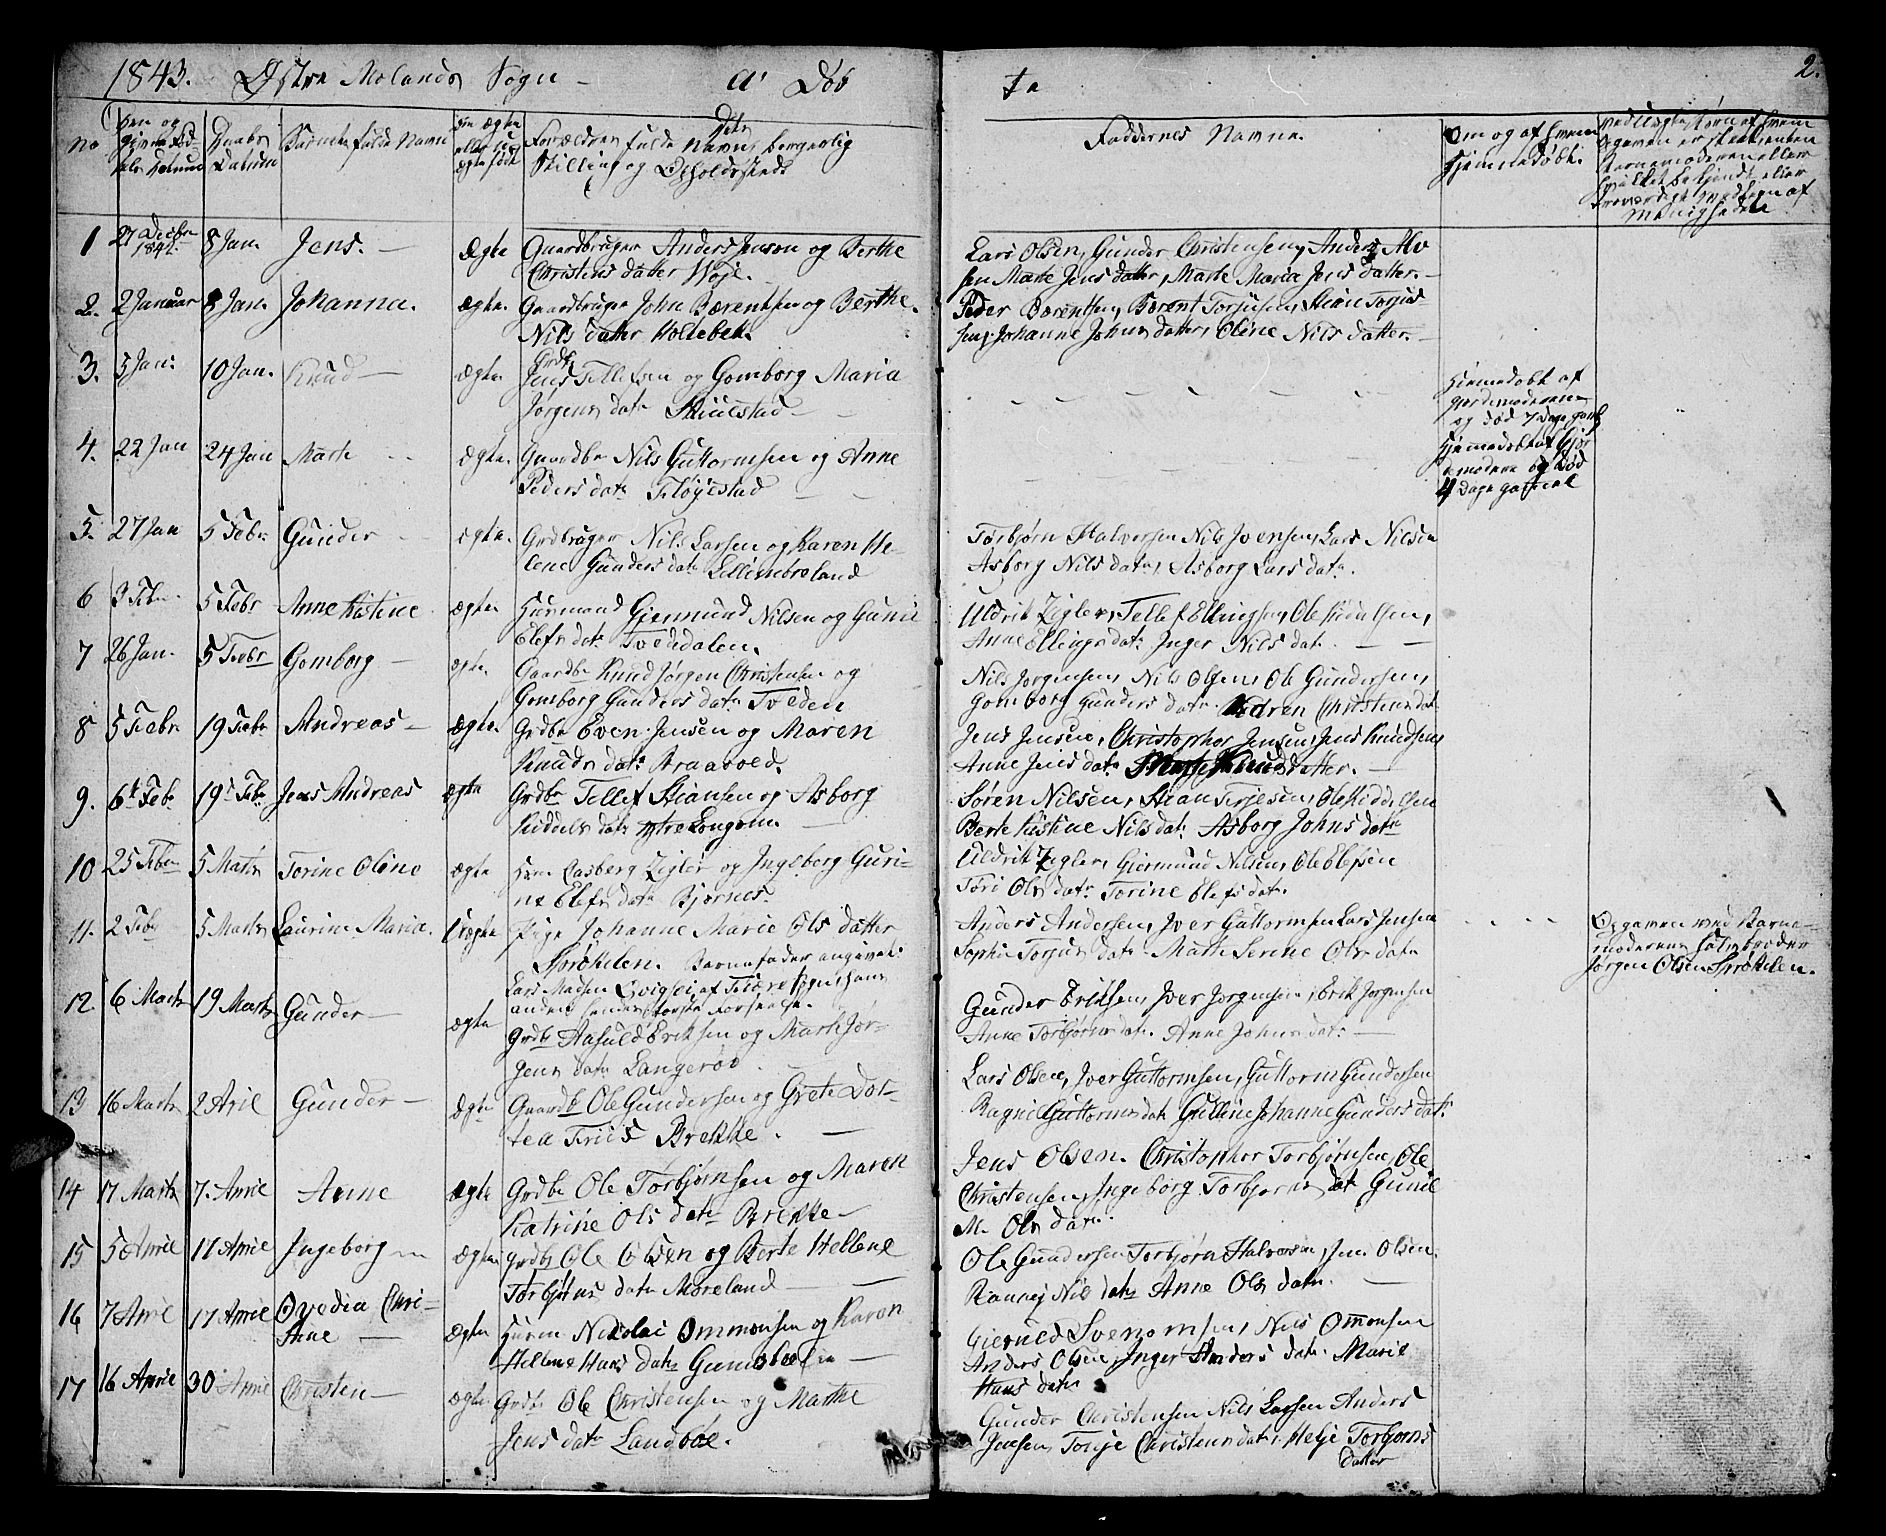 1843. Østre Molands Sogn - a' Døb
te 2.
No
Daabs
Barnets fulde Navn
Forældres fulde Navn, borgerlig
Stilling og Opholdssteds
Faddernes Navne.
Om og af hvem
hjemmedøbt.
1 27 Decbr 1842 8 Jan. Jens. - Ægte Gaardbruger Anders Jenson og Berthe
Christens datter Woje.
Lars Olsen, Gunder Christensen, Anders Alv
sen Marte Jens datter, Marte Maria Jens datter. -
2. 2 Januar 8 Jan. Johanna. ægte. Gaardbruger John Bærentsen og Berthe
Nils datter Holtebek.
Peder Bærentsen, Bærent Torjusen, Stian Torjus-
sen, Johanne Johns datter, Oline Nils datter. -
3. 5 Jan. 10 Jan. Knud - ægte Grdb.
Jens Tellefsen og Gomborg Maria
Jørgens datr Skiulestad -
Hjemmedøbt af
gjordemoderen
og død 7 Dage gaml
4. 22 Jan 24 Jan Marte - - ægte. Gaardbr Nils Guttormsen og Anne
Peders datr Fløjestad -
Hjemmedøbt af Gjor
demodere og Død
4 Dage gammel
5. 27 Jan 5 Febr. Gunder - ægte. Grdbruger Nils Larsen og Karen He-
lene Gunders datr Lillimoreland
Torbjørn Halversen Nils Ivensen, Lars Nilsen
Asborg Nils datr, Asborg Lars datr.
6 3 Febr. 5 Febr Anne Kistine ægte Huusmand Gjermund Nilsen og Guni
Elefs datr Tvededalen.
Uldrik Zigler, Tellef Ellingsen, Ole Kidulsen,
Anne Ellings datr Inger Nils datr. - -
7 26 Jan. 5 Febr Gomborg - ægte. Gaardbr Knud Jørgen Christensen og
Gomborg Gunders datr Tveden
Nils Jørgensen, Nils Olsen, Ole Gundersen,
Gomborg Gunders datr. Karen Christens dat
8 5 Febr 19 Febr Andreas - ægte. Grdbr Even Jensen og Maren
Knuds datr Braavold.
Jens Jensen, Christopher Jensen, Jens Knudsen,
Anne Jens datr Marte Knuds datter. -
9. 6t Feb. 19 Feb. Jens Andreas ægte Grdbr Tellef Stiansen og Asborg
Kiddels datr ytre Longom. -
Søren Nilsen, Stian Terjesen, Ole Kiddelsen
Berte Kistine Nils datr Asborg Johns datr
10 25 Febr 5 Marts Torine Oline ægte Huus. Casberg Zigler og Ingeborg Guri-
ne Elefs datr Bjørnes.
Uldrik Zigler, Giermund Nilsen, Ole Elefsen
Tori Ols datr Torine Elefs datr.
11. 2 Feb 5 Marts Laurine Maria. Uægte Pige Johanne Marie Ols datter
Sprøkilen. Barnefader angivet:
Lars Madsen
Anders Andersen, Iver Guttormsen Lars Jensen
Sophie Torjus datr Marte Serine Ols datr
Opgaven ved Barne-
moderens halvbroder
Jørgen Olsen Sprøkilen.
12. 6 Marts 19 Marts Gunder - ægte Grdb Aasuld Eriksen og Marte Jør-
gens datr Langerød.
Gunder Eriksen, Iver Jørgensen, Erik Jørgensen
Anne Torbjørns datr. Anne Johns datr. -
13 16 Marts 2 April Gunder - ægte Gaardb Ole Gundersen og Grete Dor-
tea Friis Brekke. -
Lars Olsen, Iver Guttormsen, Guttorm Gundersen
Ragni Guttorms dat Gulline Johanne Gunders datr
14 17 Marts 7. April Anne ægte Grdbr Ole Torbjørnsen og Maren
Katrine Ols datr Brekke -
Jens Olsen. Christopher Torbjørnsen, Ole
Christensen, Ingeborg Torbjørns dat Gunil
M. Ols datr.
15 5 April 17 April Ingeborg - ægte Grdbr Ole Olsen og Berte Hellene
Torbjørns datr Moreland -
Ole Gundersen Torbjørn Halvorsen, Jens Olsen.
Rannej Nils datr Anne Ols datr. -
16 7 April 17 April Ovedia Chri-
stine - ægte Huusm Nikolai Ommonsen og Karen
Hellene Hans datr -
Gierulf Svenomsen, Nils Ommonsen
Anders Olsen, Inger Anders datr Marie
Hans datr
17 16 April 30 April Christen - ægte Grdbr Ole Christensen og Marthe
Jens datr Landbøe.
Gunder Christensen Nils Larsen Anders
Jensen, Tonje Christens datr, Helje Torbjørns
datter